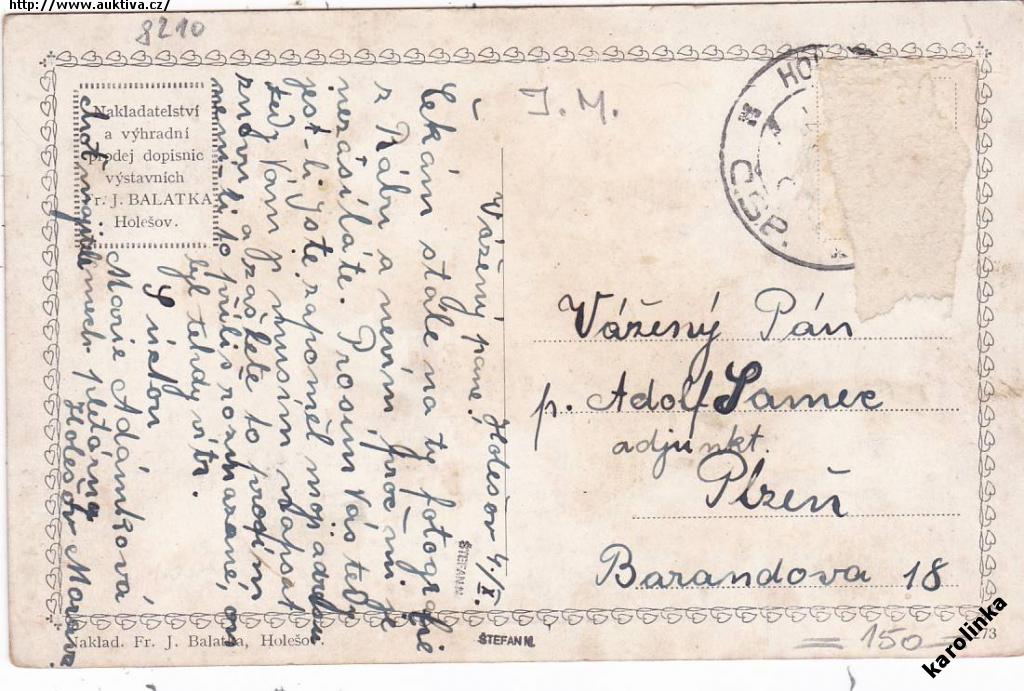 http://www.auktiva.cz/
8210
Nakladatelství
a výhradní
prodej dopisnic
výstavních
Fr. J. BALATKA
Holešov.
J. M.
HO
Č.S.P.
Holešov 4/X.
Vážený pane!
Čekám stále na ty fotografie
z Rábu a nevím proč mi je
nezasíláte. Prosím Vás tedy
jest-li jste zapomněl moji adresu
tedy Vám ji musím napsat
znovu a zašlete to prosím
není-li to příliš rozmazané, on
byl tehdy vítr.
S úctou
Marie Adámková
pletárna
Holešov Morava
Vážený Pán
p. Adolf Samec
adjunkt.
Plzeň
Barandova 18
ŠTEFAN M.
ŠTEFAN M.
Naklad. Fr. J. Balatka, Holešov.
150
73
karolinka